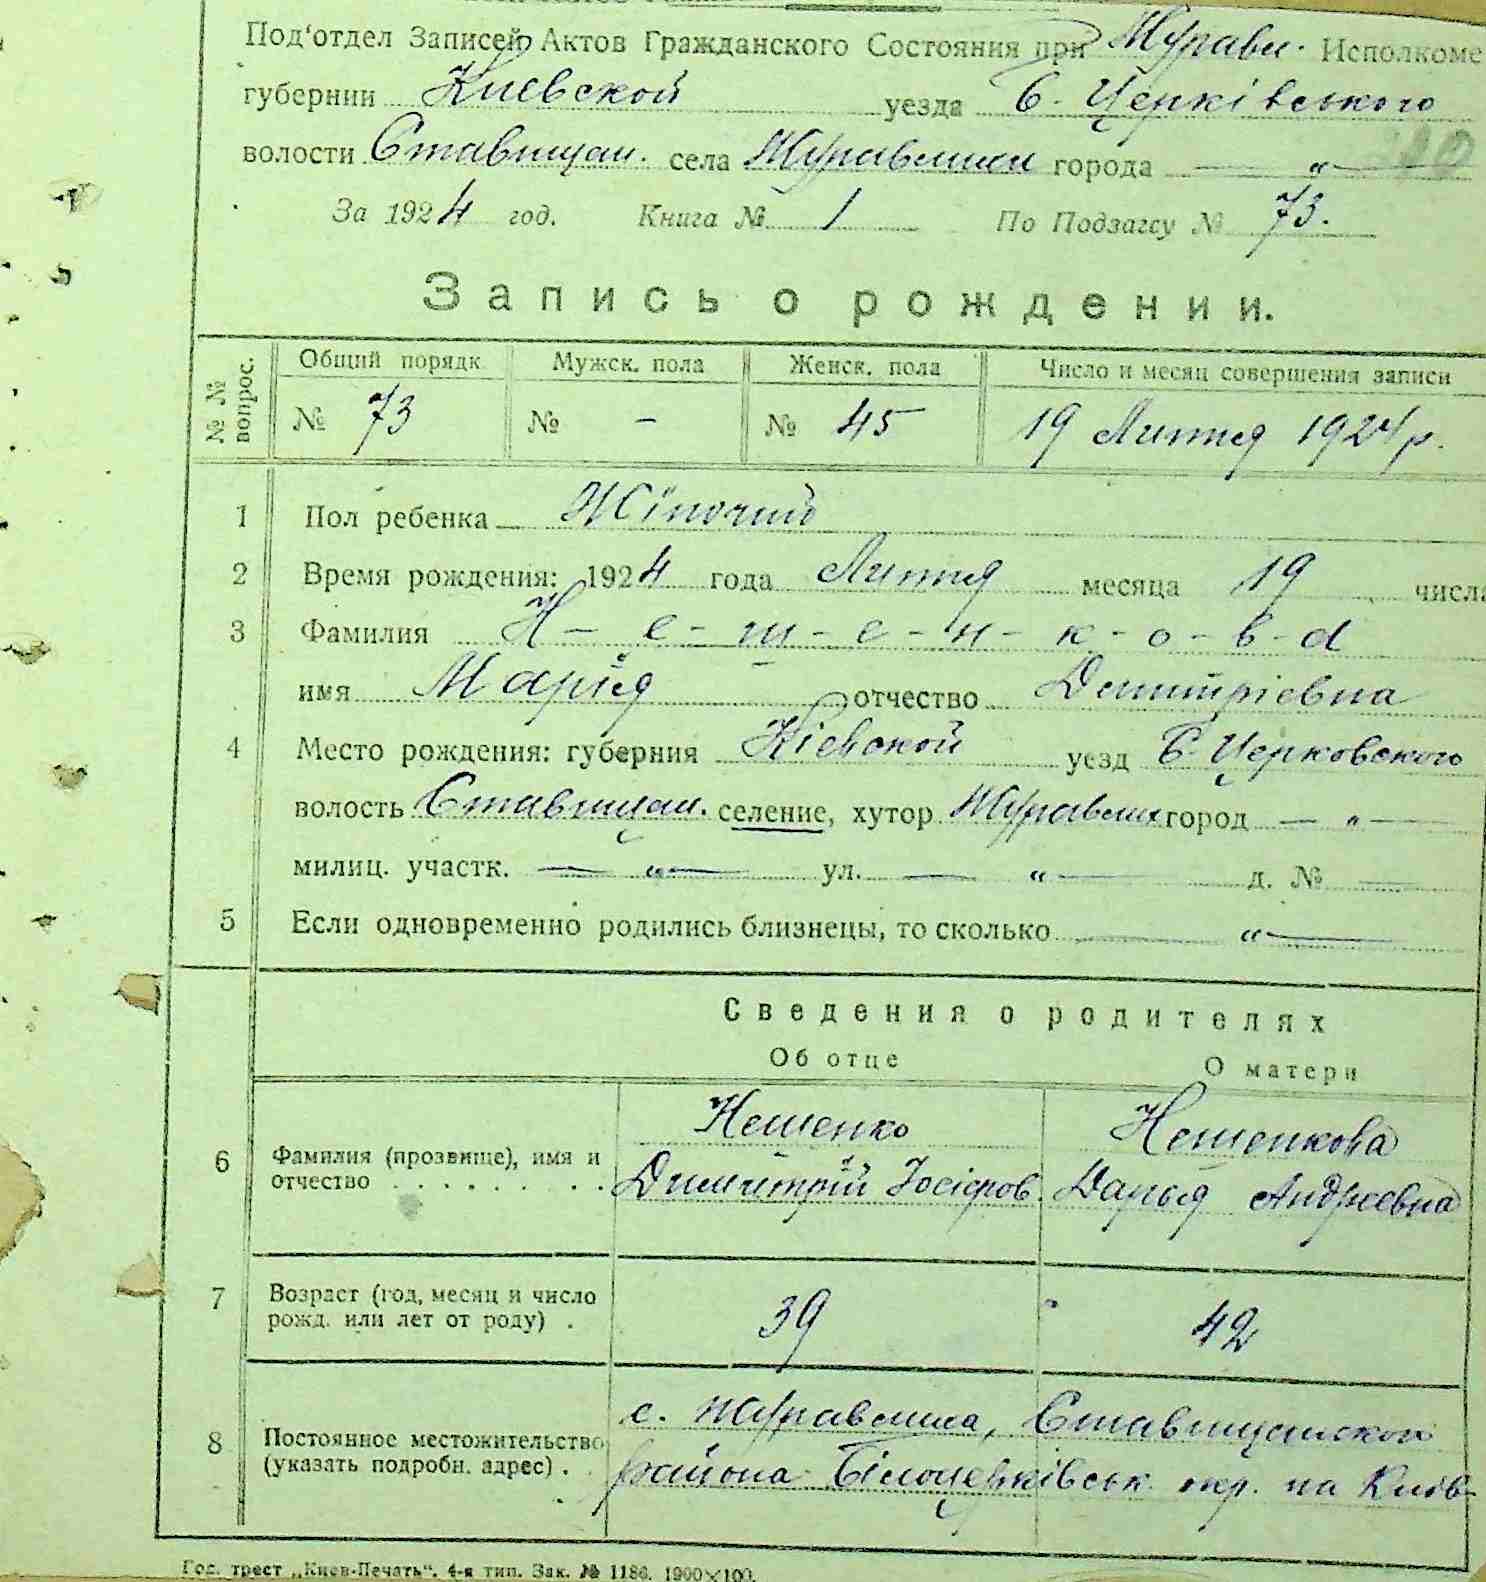 Под'отдел Записей Актов Гражданского Состояния при Журавл. Исполкоме
губернии Киевской уезда Б. Церківського
волости Ставищан. села Журавлихи города — „ —
За 1924 год. Книга № 1 По Подзагсу № 73.
Запись о рождении.
№ № вопрос. Общий порядк. Мужск. пола Женск. пола Число и месяц совершения записи
№ 73 № - № 45 19 Липня 1924 р.
1 Пол ребенка Жіночий
2 Время рождения: 1924 года Липня месяца 19 числа
3 Фамилия Н - е - ш - е - н - к - о - в - а
имя Марія отчество Димитріевна
4 Место рождения: губерния Кіевской уезд Б. Церковского
волость Ставищан. селение, хутор Журавлиха город — „ —
милиц. участк. — „ — ул. — „ — д. № —
5 Если одновременно родились близнецы, то сколько — „ —
Сведения о родителях
Об отце О матери
6 Фамилия (прозвище), имя и отчество Нешенко Нешенкова
Димитрій Іосіфов. Дарья Андреевна
7 Возраст (год, месяц и число рожд. или лет от роду) . 39 42
8 Постоянное местожительство (указать подробн. адрес) . с. Журавлиха, Ставищанского
района Білоцерківськ. окр. на Київ-
Гос. трест „Киев-Печать". 4-я тип. Зак. № 1186. 1900×100.